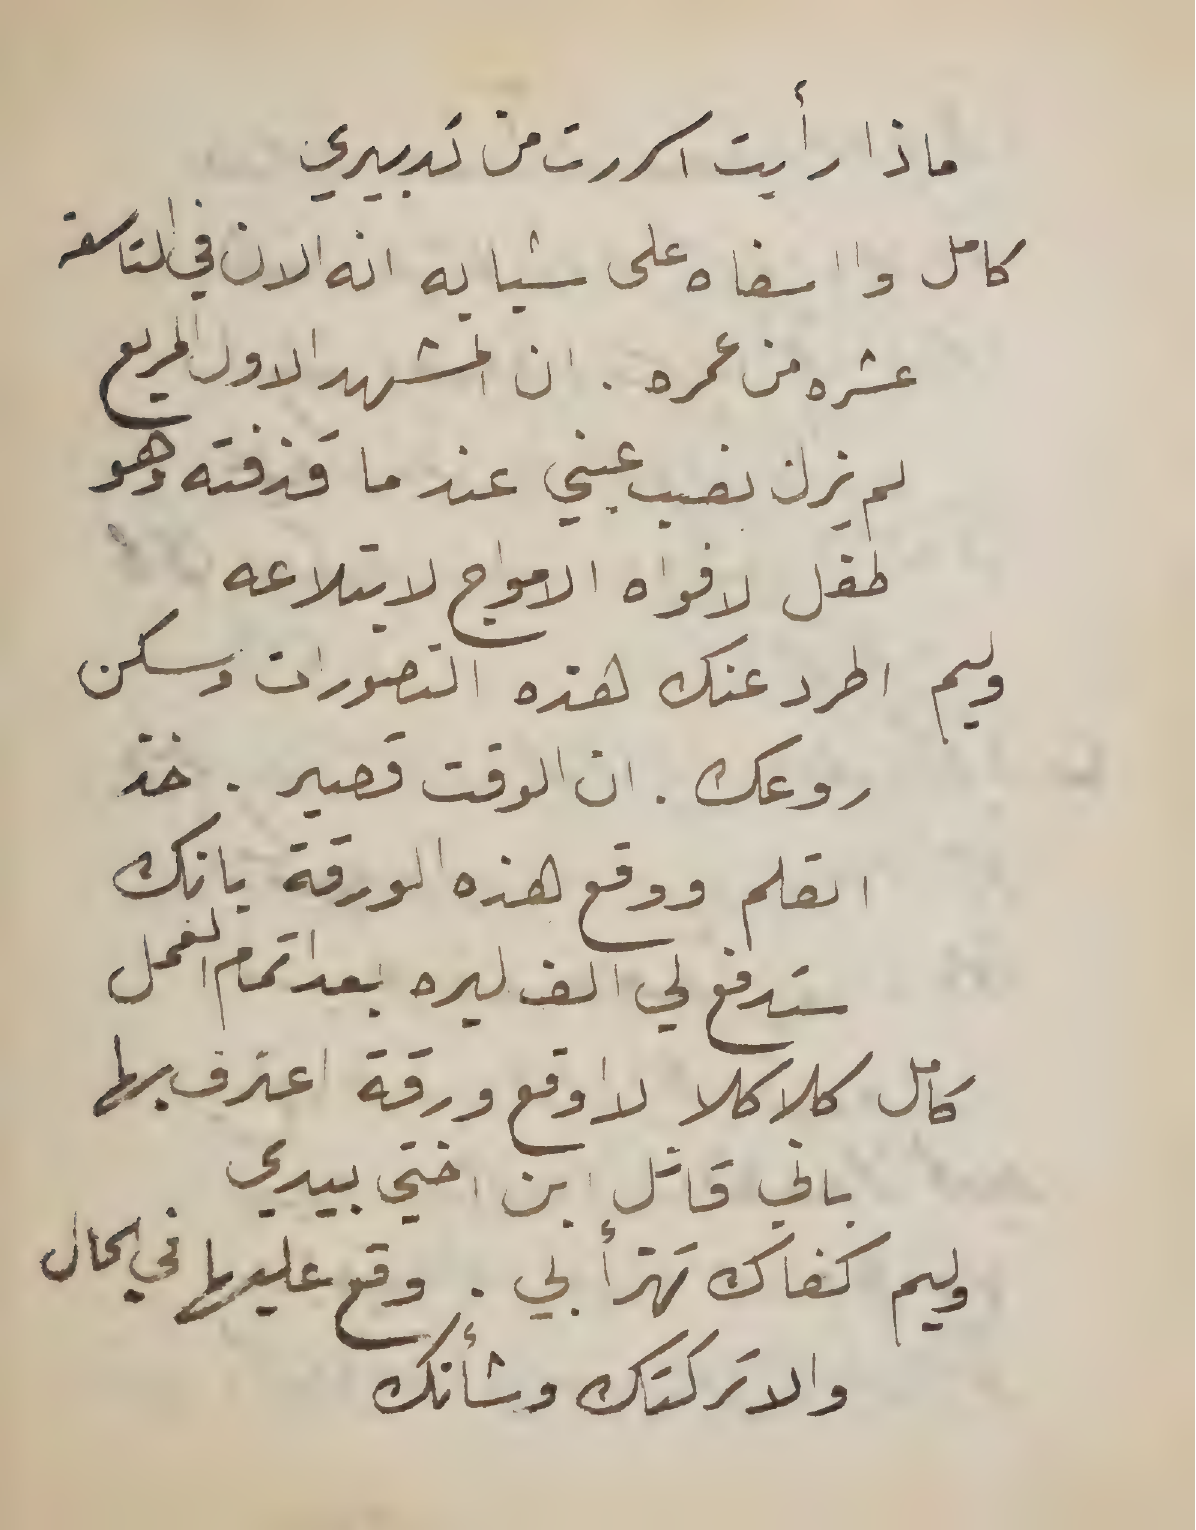 ماذا رأيت اسررت من تدبيري
كامل وا اسفاه على شبابه انه الان في التاسعة
عشره من عمره . ان المشهد الاول المريع
لم يزل نصب عيني عند ما قذفته وهو
طفل لافواه الامواج لابتلاعه
وليم اطرد عنك هذه التصورات وسكن
روعك . ان الوقت قصير . خذ
القلم ووقع هذه الورقة بانك
ستدفع لي الف ليره بعد اتمام العمل
كامل كلا كلا لا اوقع ورقة اعترف بها
باني قاتل ابن اختي بيدي
وليم كفاك تهزأ بي . وقع عليها في الحال
والا تركتك وشأنك